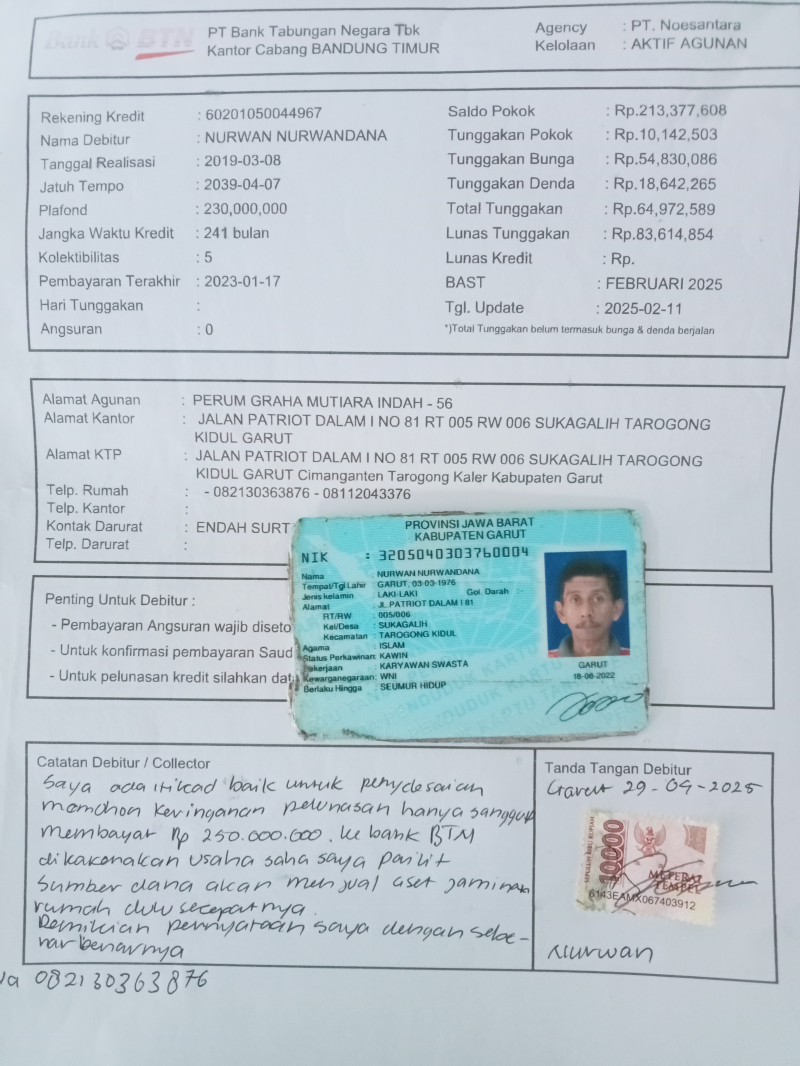 Bank BTN
PT Bank Tabungan Negara Tbk
Kantor Cabang BANDUNG TIMUR
Agency : PT. Noesantara
Kelolaan : AKTIF AGUNAN
Rekening Kredit : 60201050044967
Nama Debitur : NURWAN NURWANDANA
Tanggal Realisasi : 2019-03-08
Jatuh Tempo : 2039-04-07
Plafond : 230,000,000
Jangka Waktu Kredit : 241 bulan
Kolektibilitas : 5
Pembayaran Terakhir : 2023-01-17
Hari Tunggakan :
Angsuran : 0
Saldo Pokok : Rp.213,377,608
Tunggakan Pokok : Rp.10,142,503
Tunggakan Bunga : Rp.54,830,086
Tunggakan Denda : Rp.18,642,265
Total Tunggakan : Rp.64,972,589
Lunas Tunggakan : Rp.83,614,854
Lunas Kredit : Rp.
BAST : FEBRUARI 2025
Tgl. Update : 2025-02-11
*)Total Tunggakan belum termasuk bunga & denda berjalan
Alamat Agunan : PERUM GRAHA MUTIARA INDAH - 56
Alamat Kantor : JALAN PATRIOT DALAM I NO 81 RT 005 RW 006 SUKAGALIH TAROGONG
KIDUL GARUT
Alamat KTP : JALAN PATRIOT DALAM I NO 81 RT 005 RW 006 SUKAGALIH TAROGONG
KIDUL GARUT Cimanganten Tarogong Kaler Kabupaten Garut
Telp. Rumah : - 082130363876 - 08112043376
Telp. Kantor :
Kontak Darurat : ENDAH SURT
Telp. Darurat :
PROVINSI JAWA BARAT
KABUPATEN GARUT
NIK : 3205040303760004
Nama : NURWAN NURWANDANA
Tempat/Tgl Lahir : GARUT, 03-03-1976
Jenis kelamin : LAKI-LAKI Gol. Darah : -
Alamat : JL.PATRIOT DALAM I 81
RT/RW : 005/006
Kel/Desa : SUKAGALIH
Kecamatan : TAROGONG KIDUL
Agama : ISLAM
Status Perkawinan: KAWIN
Pekerjaan : KARYAWAN SWASTA
Kewarganegaraan: WNI
Berlaku Hingga : SEUMUR HIDUP
GARUT
18-08-2022
Penting Untuk Debitur :
- Pembayaran Angsuran wajib diseto
- Untuk konfirmasi pembayaran Saud
- Untuk pelunasan kredit silahkan dat
Catatan Debitur / Collector
Saya ada itikad baik untuk penyelesaian
memohon keringanan pelunasan hanya sanggup
membayar Rp 250.000.000. ke bank BTN
dikakenakan usaha saha saya pailit
Sumber dana akan menjual aset jaminan
rumah dulu secepatnya.
Demikian pernyataan saya dengan sebe-
nar benarnya
082130363876
Tanda Tangan Debitur
Garut 29-09-2025
SEPULUH RIBU RUPIAH
10000
METERAI
TEMPEL
6143EAMX067403912
Nurwan